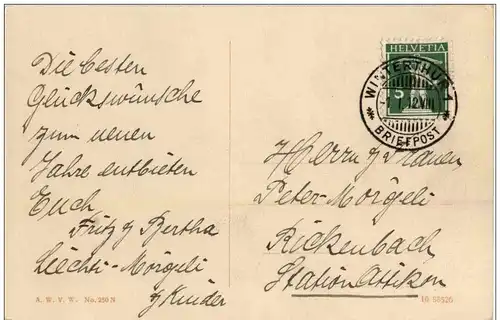 Die besten
Glückswünsche
zum neuen
Jahre entbieten
Euch
Fritz & Bertha
Liechti-Mörgeli
& Kinder
A. W. V. W. No. 250 N
HELVETIA
5
WINTERTHUR 1
12.VIII
BRIEFPOST
Herrn & Frauen
Peter-Mörgeli
Rickenbach
Station Attikon